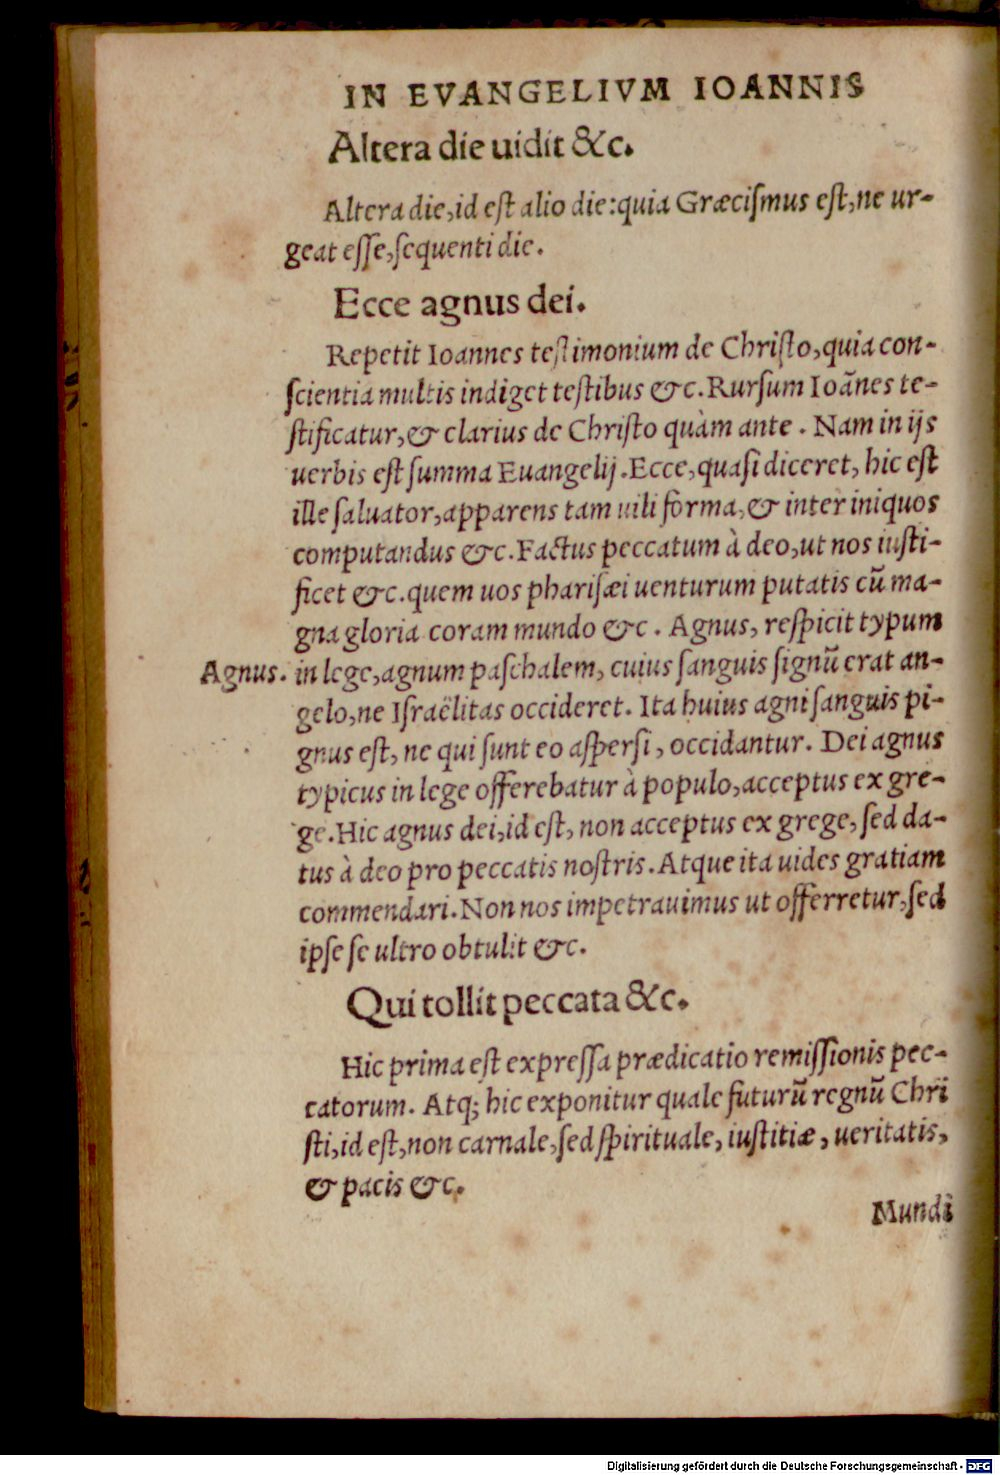 IN EVANGELIVM IOANNIS
Altera die uidit &c.
Altera die, id eſt alio die: quia Græciſmus eſt, ne ur-
geat eſſe, ſequenti die.
Ecce agnus dei.
Repetit Ioannes teſtimonium de Chriſto, quia con-
ſcientia multis indiget teſtibus &c. Rurſum Ioãnes te-
ſtificatur, & clarius de Chriſto quàm ante. Nam in ijs
uerbis eſt ſumma Euangelij. Ecce, quaſi diceret, hic eſt
ille ſaluator, apparens tam uili forma, & inter iniquos
computandus &c. Factus peccatum à deo, ut nos iuſti-
ficet &c. quem uos phariſæi uenturum putatis cũ ma-
gna gloria coram mundo &c. Agnus, reſpicit typum
Agnus. in lege, agnum paſchalem, cuius ſanguis ſignũ erat an-
gelo, ne Iſraëlitas occideret. Ita huius agni ſanguis pi-
gnus eſt, ne qui ſunt eo aſperſi, occidantur. Dei agnus
typicus in lege offerebatur à populo, acceptus ex gre-
ge. Hic agnus dei, id eſt, non acceptus ex grege, ſed da-
tus à deo pro peccatis noſtris. Atque ita uides gratiam
commendari. Non nos impetrauimus ut offerretur, ſed
ipſe ſe ultro obtulit &c.
Qui tollit peccata &c.
Hic prima eſt expreſſa prædicatio remiſſionis pec-
catorum. Atq; hic exponitur quale futurũ regnũ Chri
ſti, id eſt, non carnale, ſed ſpirituale, iuſtitiæ, ueritatis,
& pacis &c.
Mundi
Digitalisierung gefördert durch die Deutsche Forschungsgemeinschaft - DFG